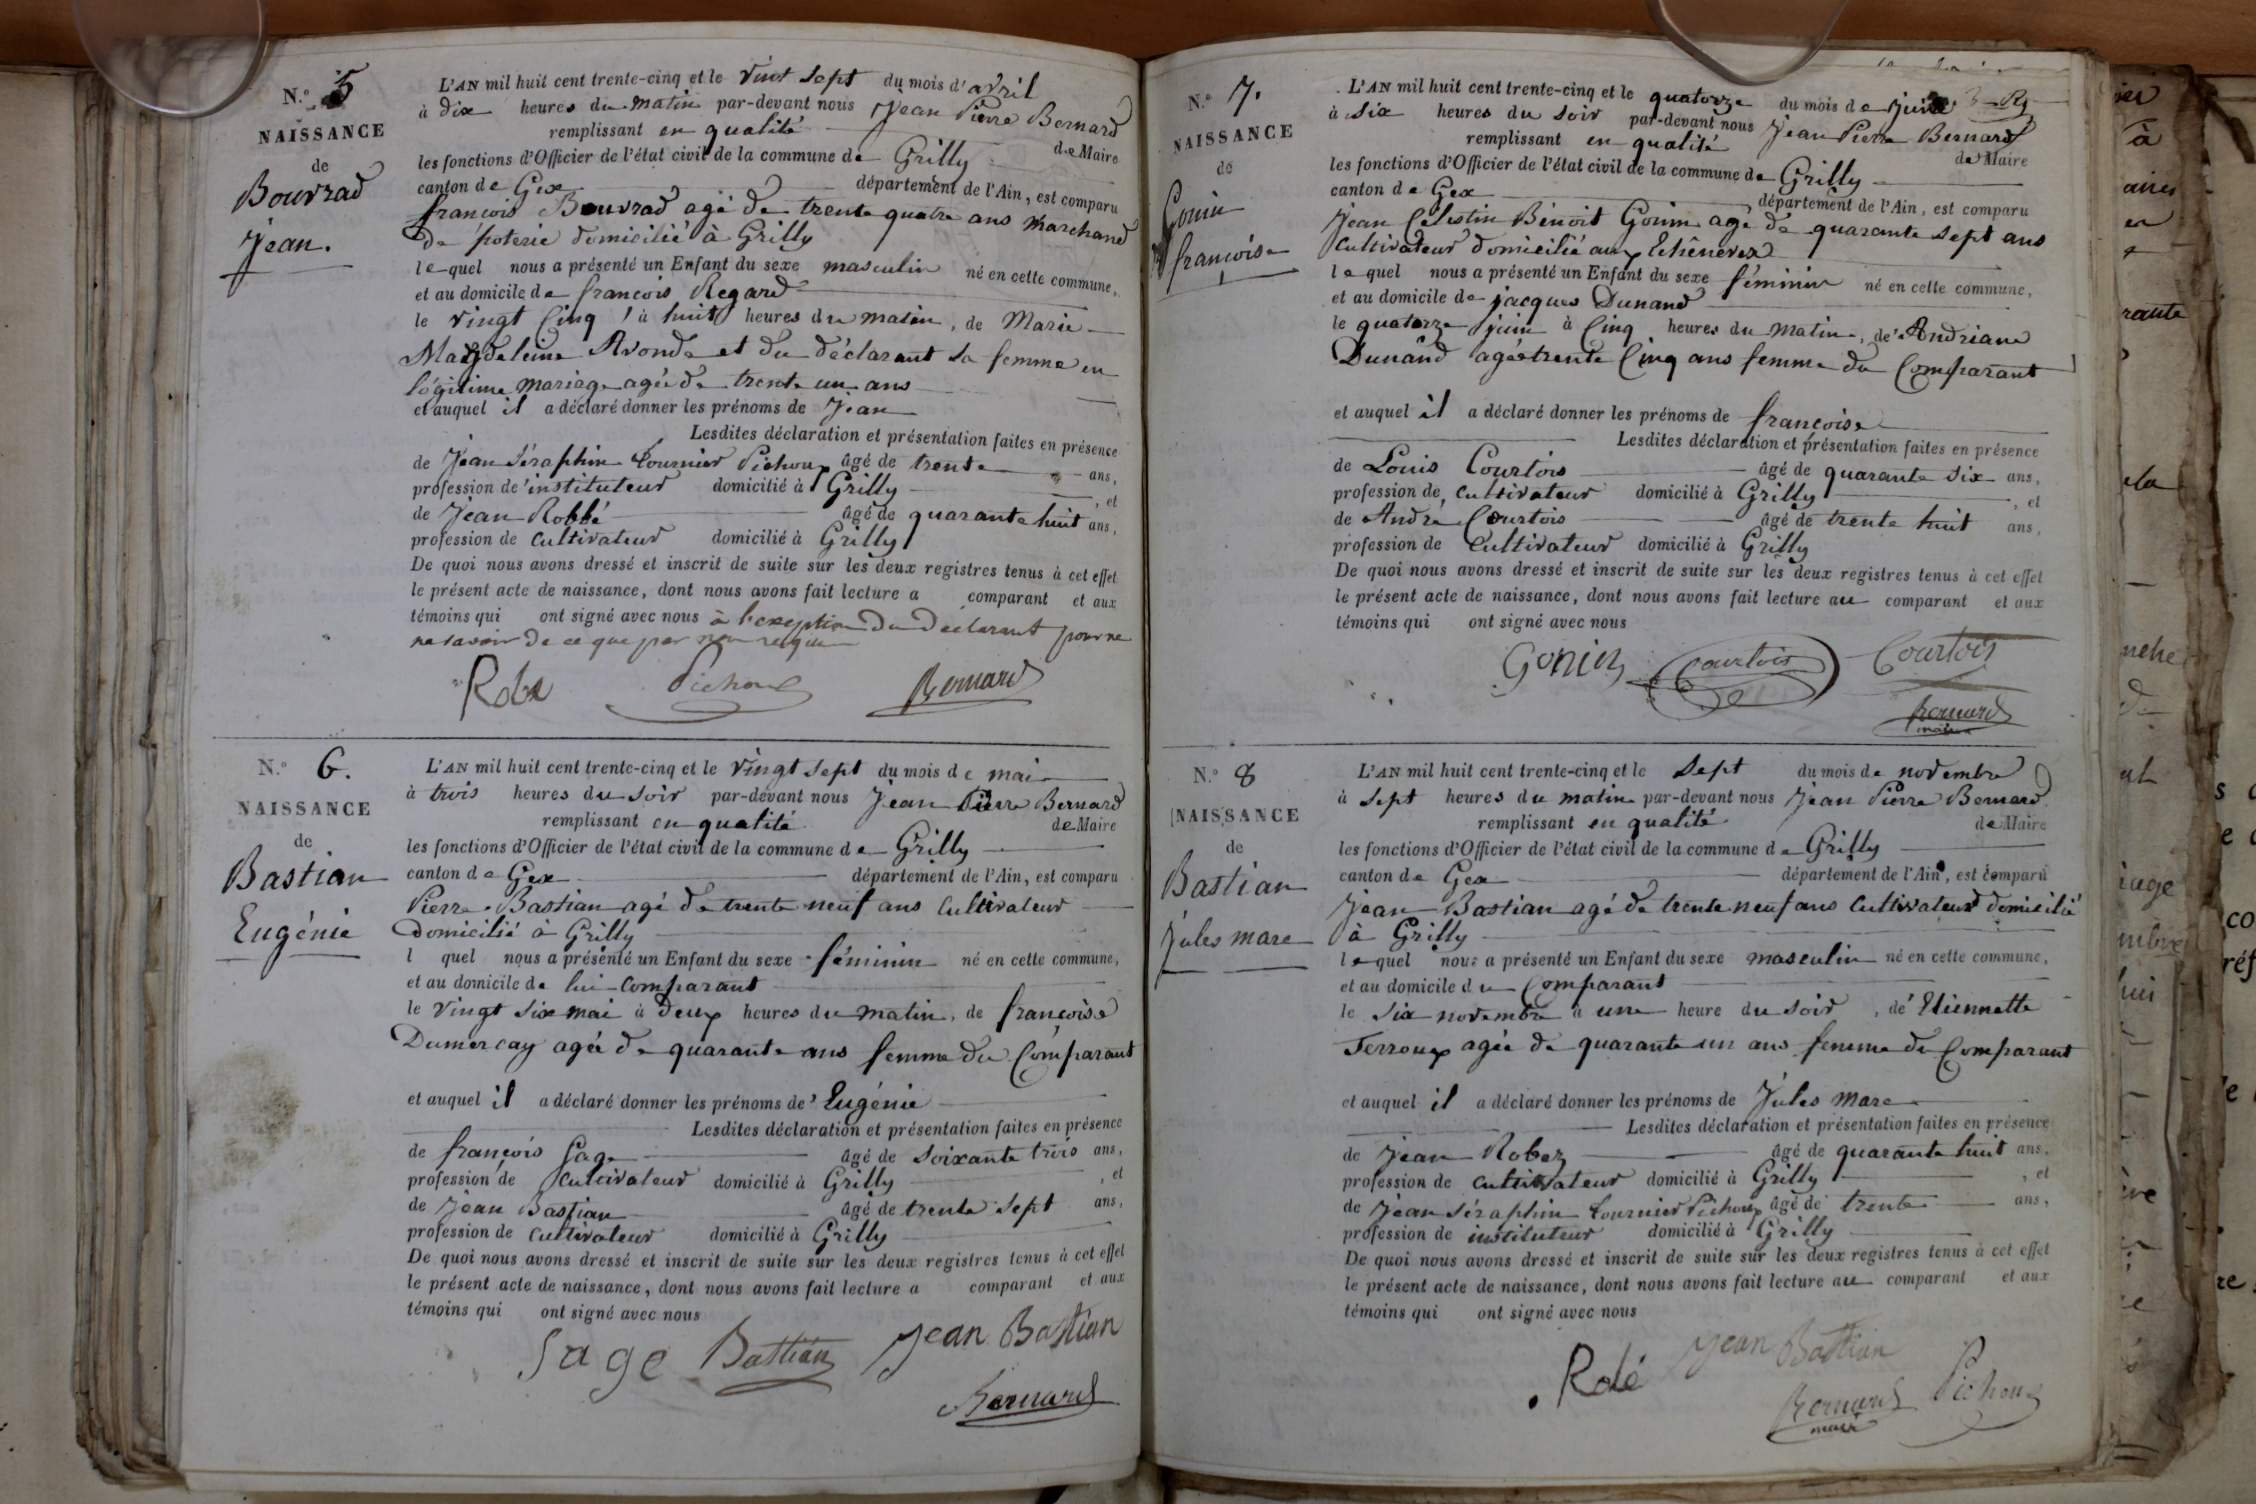 N.° 5
NAISSANCE
de
Bouvrad
Jean.
L'AN mil huit cent trente-cinq et le vint sept du mois d'avril
à dix heures du matin par-devant nous Jean Pierre Bernard
remplissant en qualité de Maire
les fonctions d'Officier de l'état civil de la commune de Grilly
canton de Gex département de l'Ain, est comparu
françois Bouvrad agé de trente quatre ans marchand
de poterie domicilié à Grilly
lequel nous a présenté un Enfant du sexe masculin né en cette commune,
et au domicile de francois Regard
le vingt Cinq à huit heures du matin, de Marie
Magdeleine Avonde et du déclarant sa femme en
légitime mariage agée de trente un ans
et auquel il a déclaré donner les prénoms de Jean
Lesdites déclaration et présentation faites en présence
de Jean Séraphin Tournier Pichoux âgé de trente ans,
profession de instituteur domicilié à Grilly, et
de Jean Robbé âgé de quarante huit ans,
profession de cultivateur domicilié à Grilly
De quoi nous avons dressé et inscrit de suite sur les deux registres tenus à cet effet
le présent acte de naissance, dont nous avons fait lecture a comparant et aux
témoins qui ont signé avec nous à l'exception du déclarant pour ne
ne savoir de ce que par nous requis
Robe Pichoux Bernard
N.° 6.
NAISSANCE
de
Bastian
Eugénie
L'AN mil huit cent trente-cinq et le vingt sept du mois de mai
à trois heures du soir par-devant nous Jean Pierre Bernard
remplissant en qualité de Maire
les fonctions d'Officier de l'état civil de la commune de Grilly
canton de Gex département de l'Ain, est comparu
Pierre Bastian agé de trente neuf ans Cultivateur
domicilié à Grilly
l quel nous a présenté un Enfant du sexe féminin né en cette commune,
et au domicile de lui comparant
le vingt six mai à deux heures du matin, de françoise
Dumorcay agée de quarante ans femme du Comparant
et auquel il a déclaré donner les prénoms de Eugénie
Lesdites déclaration et présentation faites en présence
de françois Sage âgé de soixante trois ans,
profession de Cultivateur domicilié à Grilly, et
de Jean Bastian âgé de trente sept ans,
profession de cultivateur domicilié à Grilly
De quoi nous avons dressé et inscrit de suite sur les deux registres tenus à cet effet
le présent acte de naissance, dont nous avons fait lecture a comparant et aux
témoins qui ont signé avec nous
Sage Bastian Jean Bastian
Bernard
N.° 7.
NAISSANCE
de
Gonin
françoise
L'AN mil huit cent trente-cinq et le quatorze du mois de juin
à six heures du soir par-devant nous Jean Pierre Bernard
remplissant en qualité de Maire
les fonctions d'Officier de l'état civil de la commune de Grilly
canton de Gex département de l'Ain, est comparu
Jean Celestin Bénoit Gonin agé de quarante sept ans
Cultivateur domicilié aux Echênévex
lequel nous a présenté un Enfant du sexe féminin né en cette commune,
et au domicile de jacques Dunand
le quatorze juin à Cinq heures du matin, de Andriane
Dunand agée trente Cinq ans femme du Comparant
et auquel il a déclaré donner les prénoms de françoise
Lesdites déclaration et présentation faites en présence
de Louis Courtois âgé de quarante six ans,
profession de cultivateur domicilié à Grilly, et
de André Courtois âgé de trente huit ans,
profession de Cultivateur domicilié à Grilly
De quoi nous avons dressé et inscrit de suite sur les deux registres tenus à cet effet
le présent acte de naissance, dont nous avons fait lecture au comparant et aux
témoins qui ont signé avec nous
Gonin Courtois Courtois
Bernard
maire
N.° 8
NAISSANCE
de
Bastian
Jules marc
L'AN mil huit cent trente-cinq et le sept du mois de novembre
à sept heures du matin par-devant nous Jean Pierre Bernard
remplissant en qualité de Maire
les fonctions d'Officier de l'état civil de la commune de Grilly
canton de Gex département de l'Ain, est comparu
Jean Bastian agé de trente neuf ans Cultivateur domicilié
à Grilly
lequel nous a présenté un Enfant du sexe masculin né en cette commune,
et au domicile du Comparant
le six novembre à une heure du soir, de Etiennette
Terroux agée de quarante un ans femme du Comparant
et auquel il a déclaré donner les prénoms de Jules marc
Lesdites déclaration et présentation faites en présence
de Jean Robez âgé de quarante huit ans,
profession de cultivateur domicilié à Grilly, et
de Jean Séraphin Tournier Pichoux âgé de trente ans,
profession de instituteur domicilié à Grilly
De quoi nous avons dressé et inscrit de suite sur les deux registres tenus à cet effet
le présent acte de naissance, dont nous avons fait lecture au comparant et aux
témoins qui ont signé avec nous
Robé Jean Bastian
Bernard Pichoux
maire